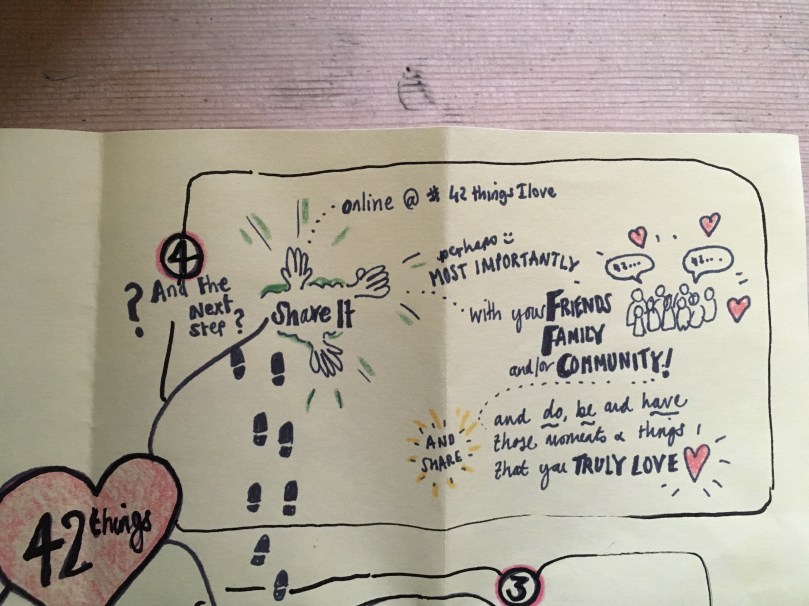 online @ # 42 things I love
4
? And the
Next
step?
Share It
perhaps
MOST IMPORTANTLY
42...
42...
with your FRIENDS
FAMILY
and/or COMMUNITY!
AND
SHARE
and do, be and have
those moments & things
that you TRULY LOVE
42 things
3